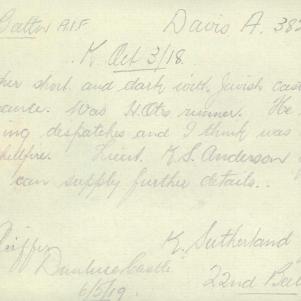 Battn A.I.F. Davis A. 382
K. Oct 3/18.
her short and dark with Jewish cast
ance. Was H.Qts runner. He
ing dispatches and I think was
hellfire. Lieut. K.S. Anderson
can supply further details..
Griffin K. Sutherland
Dunluce Castle
6/5/19. 22nd Batt